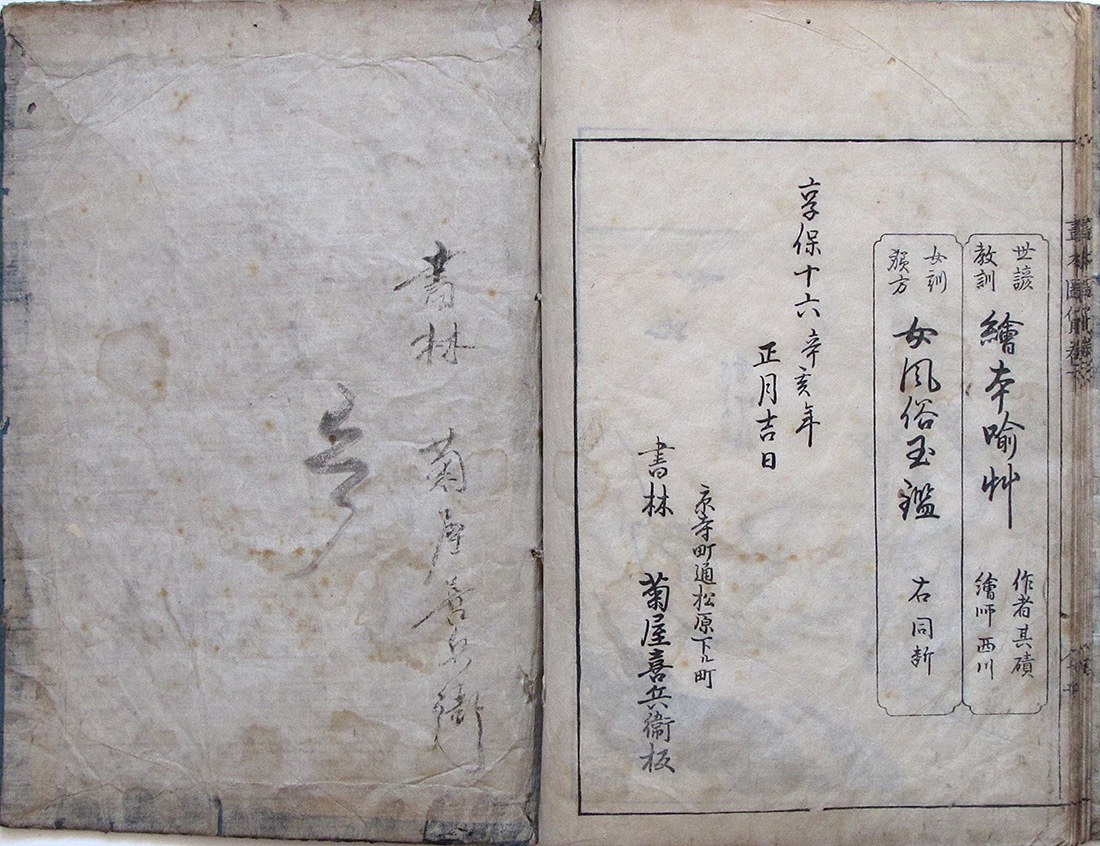 世諺
教訓
繪本喩艸
作者其磧
繪師西川
女訓
女風俗玉鑑
右同断
享保十六辛亥年
正月吉日
京寺町通松原下ル町
書林 菊屋喜兵衛板
書林 菊屋喜兵衛